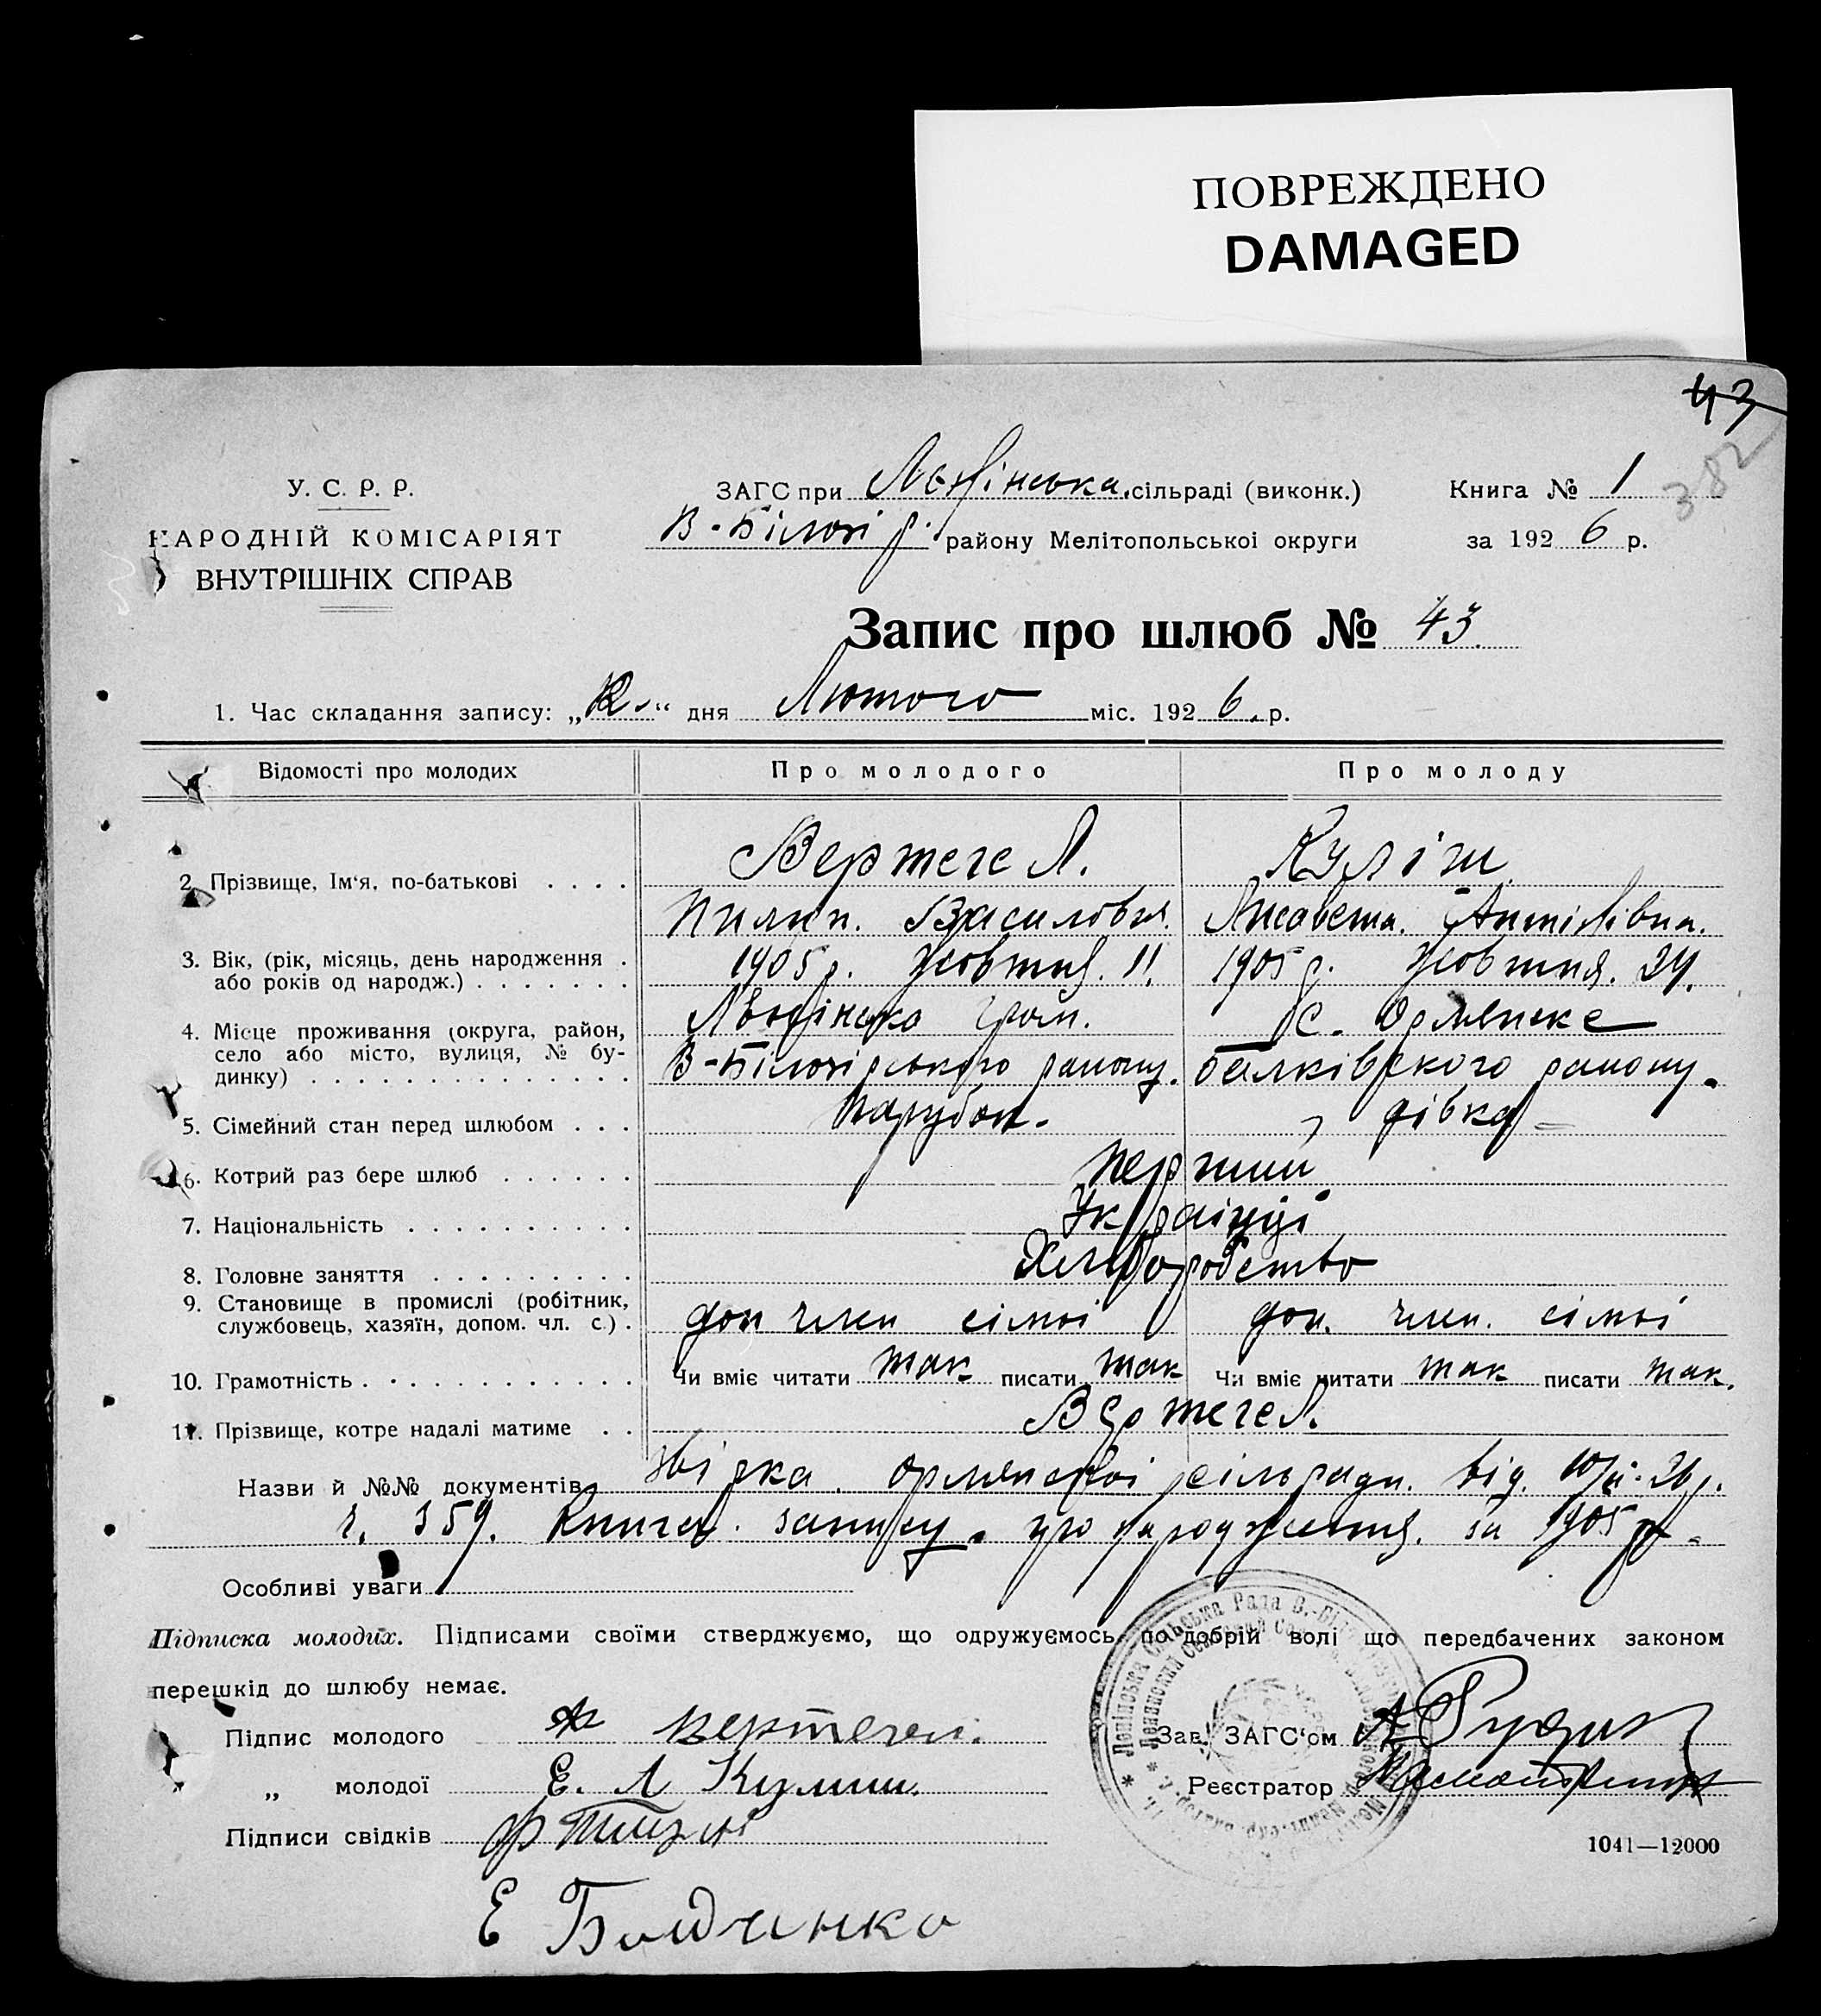 ПОВРЕЖДЕНО
DAMAGED
43
382
У. С. Р. Р.
НАРОДНІЙ КОМІСАРІЯТ
ВНУТРІШНІХ СПРАВ
ЗАГС при Ленінська сільраді (виконк.)
В-Білозір. району Мелітопольської округи
Книга № 1
за 1926 р.
Запис про шлюб № 43.
1. Час складання запису: „12“ дня Лютого міс. 1926. р.
Відомості про молодих
Про молодого
Про молоду
2. Прізвище, Ім‘я, по-батькові . . . .
Вертегел.
Куліш
Пилип. Василовия.
Лисавета.
3. Вік, (рік, місяць, день народження . або років од народж.) . . . . . . .
1905 р. Жовтня. 11.
1905 р. Жовтня. 24.
4. Місце проживання (округа, район, село або місто, вулиця, № будинку) . . . . . . . . . . . . . .
Ленінська гром.
В-Білозірського району.
с. Орлянске
балківского району.
5. Сімейний стан перед шлюбом . . .
парубок.
дівка
6. Котрий раз бере шлюб . . . . . .
перший
7. Національність . . . . . . . . . .
Українці
8. Головне заняття . . . . . . . . .
Хліборобство
9. Становище в промислі (робітник, службовець, хазяїн, допом. чл. с.) .
доп член сімьі
доп. член. сімьі
10. Грамотність . . . . . . . . . . . .
Чи вміє читати так писати так
Чи вміє читати так писати так.
11. Прізвище, котре надалі матиме . .
Вертегел.
Назви й №№ документів звірка орлянскоі сільради. від. 10/II-26 р.
ч. 359. Книга. запису. про народження. за 1905 р -
Особливі уваги
Підписка молодих. Підписами своїми стверджуємо, що одружуємось по добрій волі що передбачених законом
перешкід до шлюбу немає.
Підпис молодого вертегел.
„ молодої Е. Л Кулиш.
Підписи свідків
Зав. ЗАГС‘ом
Реєстратор
Ленінська Сільська Рада В.-Біл
1041—12000